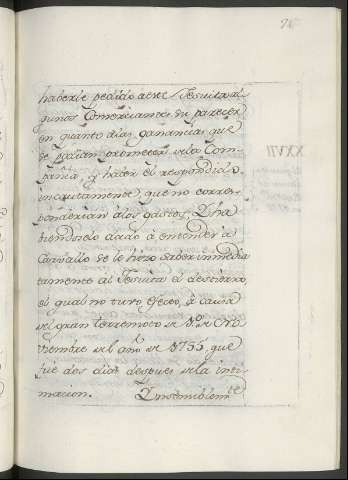 haberle pedido a este Jesuita al
gunos Comerciantes su parecer
en quanto a las ganancias que
se podian prometer de la Com
pañia, y haver el respondido
incautamente, que no corres-
ponderian a los gastos. Y ha
biendoselo dado à entender à
Carvallo se le hizo saber inmedia
tamente al Jesuita el destierro,
el qual no tuvo efecto, à causa
del gran terremoto de 1.º de No
viembre del año de 1755 que
fue dos dias despues de la inti
macion.
XXVII